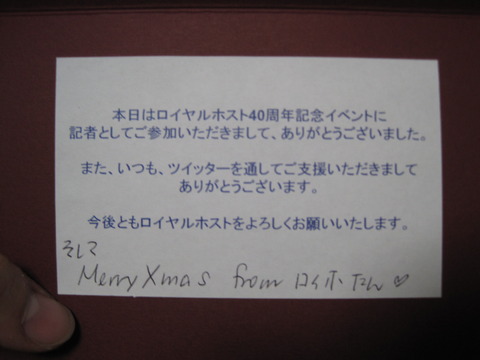 本日はロイヤルホスト40周年記念イベントに
記者としてご参加いただきまして、ありがとうございました。
また、いつも、ツイッターを通してご支援いただきまして
ありがとうございます。
今後ともロイヤルホストをよろしくお願いいたします。
そして
Merry Xmas from ロイホたん♡